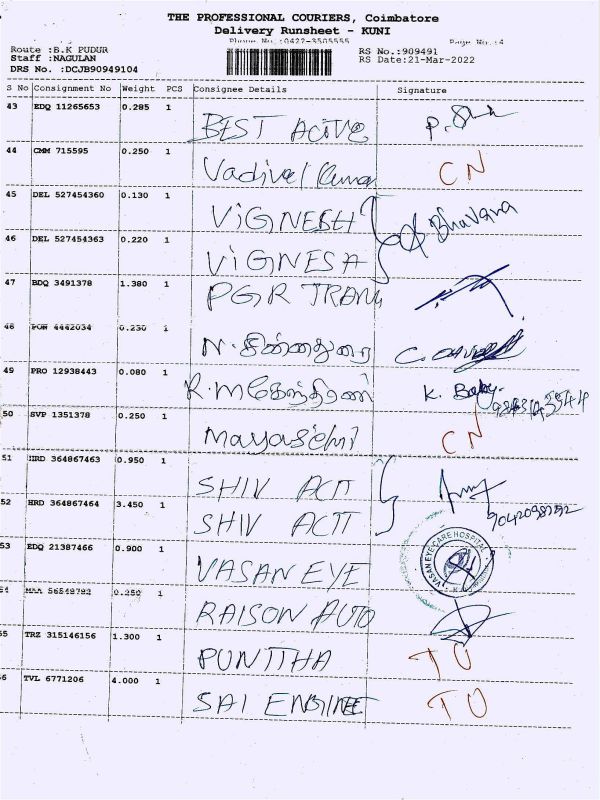 THE PROFESSIONAL COURIERS, Coimbatore
Delivery Runsheet - KUNI
Phone No.:0422-3505555 Page No.:4
Route :B.K PUDUR RS No.:909491
Staff :NAGULAN RS Date:21-Mar-2022
DRS No. :DCJB90949104
S No Consignment No Weight PCS Consignee Details Signature
43 EDQ 11265653 0.285 1
BEST ACTIVE
44 CMM 715595 0.250 1
Vadivel Kumar CN
45 DEL 527454360 0.130 1
VIGNESH Bhavana
46 DEL 527454363 0.220 1
VIGNESH
47 BDQ 3491378 1.380 1
PGR TRANS
48 PON 4442034 0.230 1
N. சின்னதுரை C.
49 PRO 12938443 0.080 1
R. மகேந்திரன் K. Baby
50 SVP 1351378 0.250 1
CN
51 HRD 364867463 0.950 1
SHIV ACTI
52 HRD 364867464 3.450 1
SHIV ACTI 9042098292
53 EDQ 21387466 0.900 1
VASAN EYE VASAN EYE CARE HOSPITAL
54 MAA 56848782 0.250 1
RAISON AUTO
55 TRZ 315146156 1.300 1
PUNITHA TU
56 TVL 6771206 4.000 1
SAI ENGINEE TU